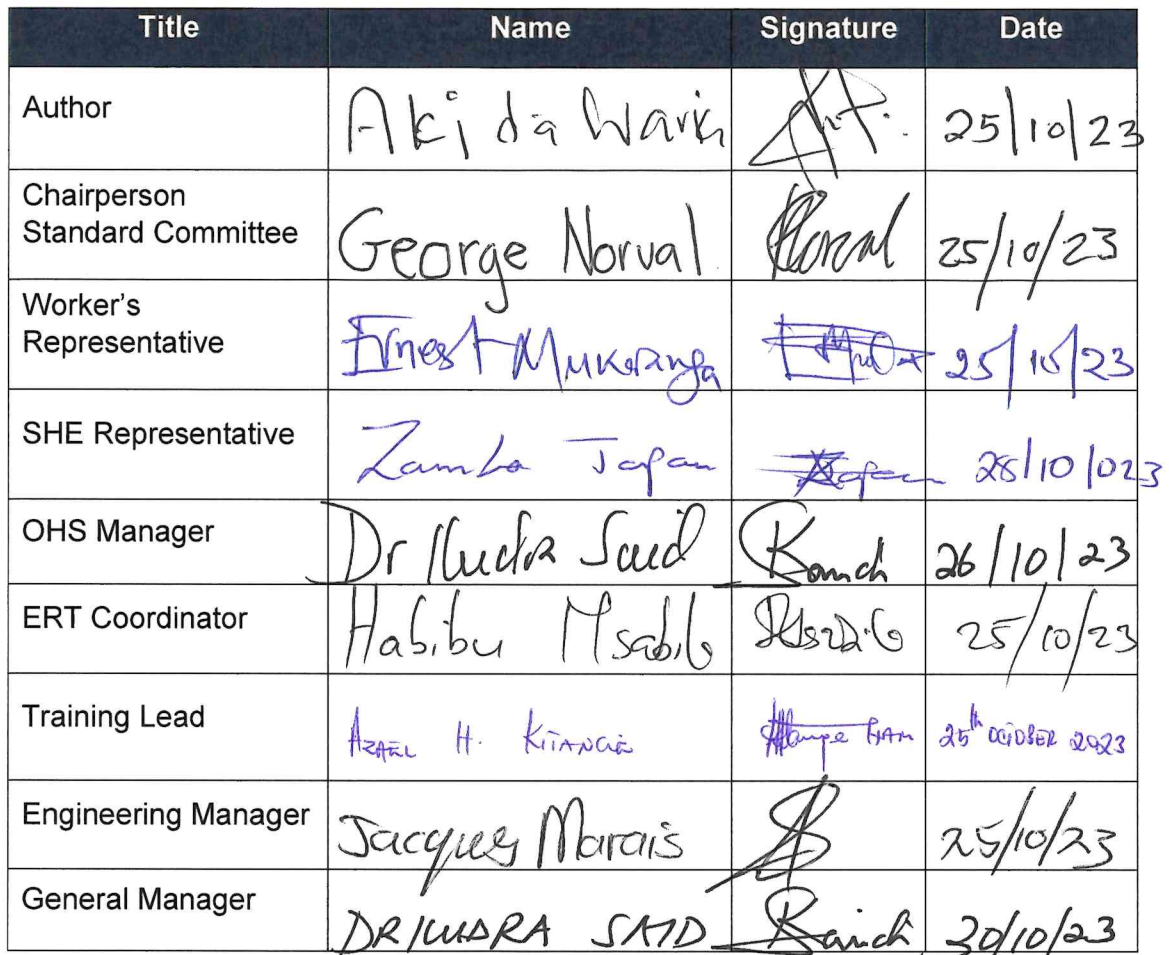 Title Name Signature Date
Author Aki da Warin 25/10/23
Chairperson
Standard Committee George Norval Norval 25/10/23
Worker's
Representative Ernest Mukaranga 25/10/23
SHE Representative Zamba Japan Japan 28/10/023
OHS Manager Dr Said 26/10/23
ERT Coordinator Habibu Msabib 25/10/23
Training Lead Azael H. 25th OCTOBER 2023
Engineering Manager Jacques Marais 25/10/23
General Manager DR SAID 30/10/23